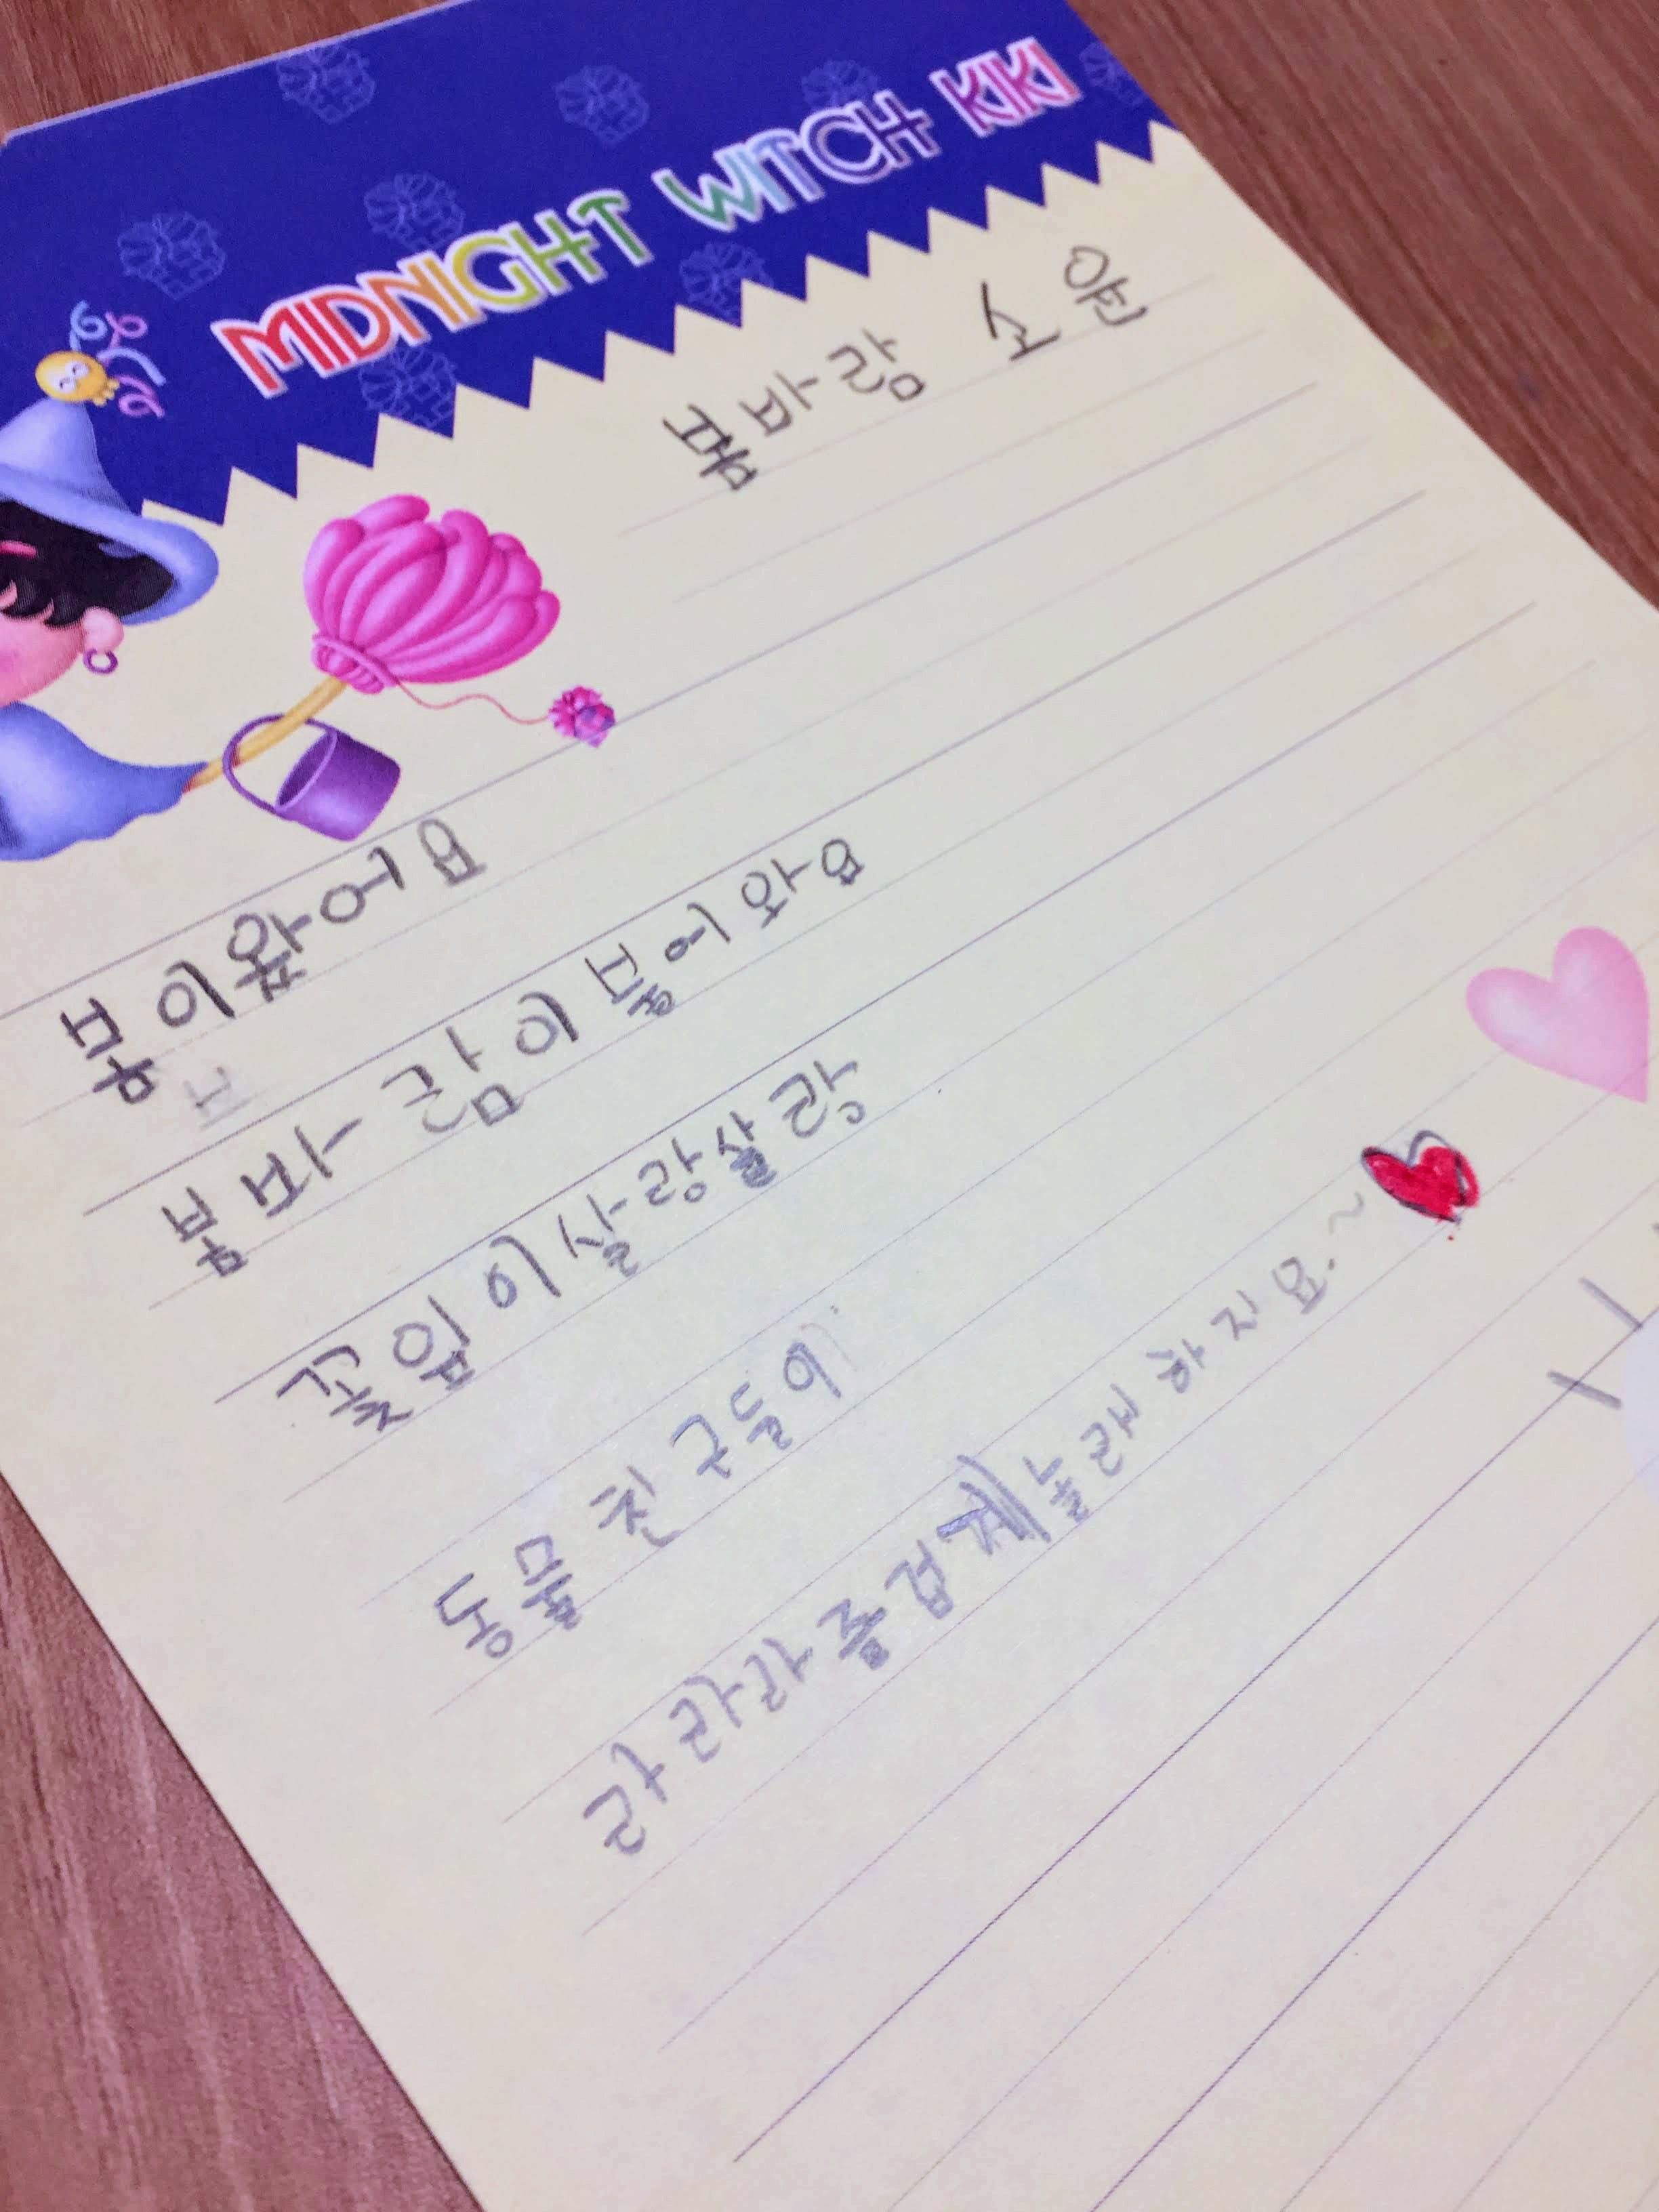 MIDNIGHT WITCH KIKI
봄바람 소윤
봄이왔어요
봄바람이불어와요
꽃잎이살랑살랑
동물친구들이
라라라즐겁게놀래하지요.~